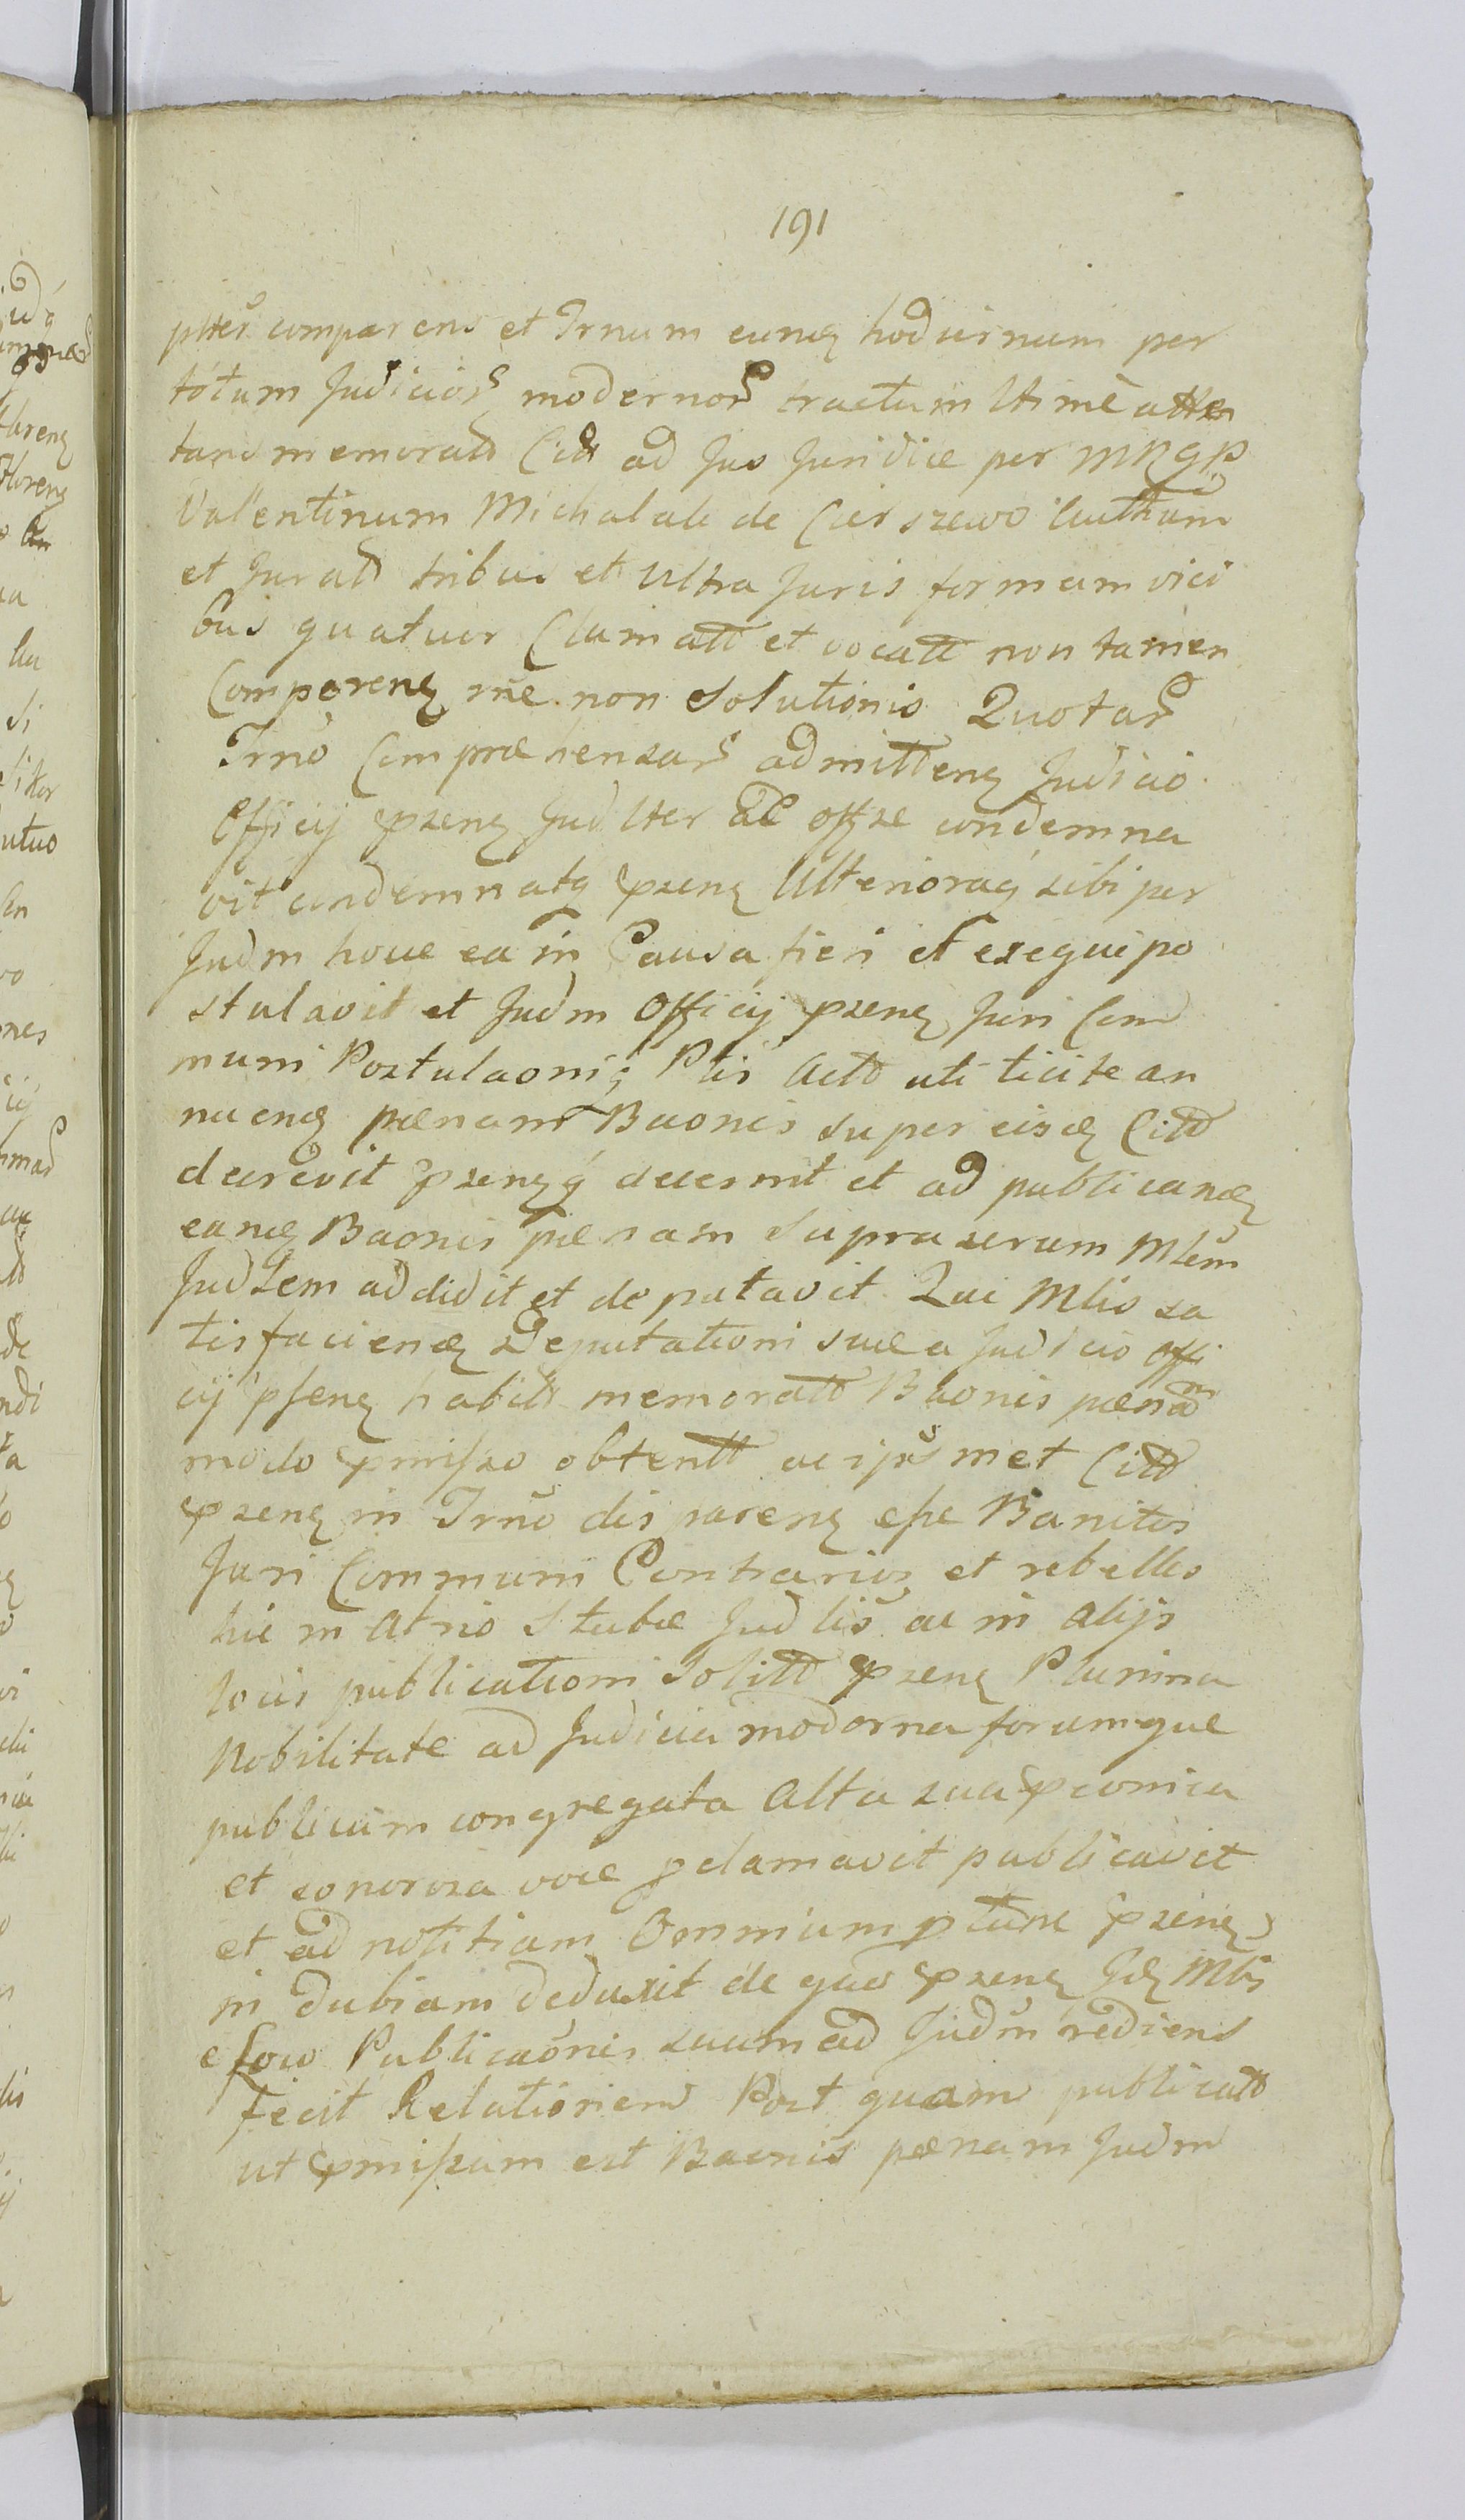 191
ptter comparens et Trnum eund hodiernum per
totum Judicior modernor tractum ltime atten
tans memorato Citt ad Jus Juridice per MNGP
Valentinum Michalak de Cierszewo
et Jurat tribus et ultra Juris formam vici
bus quatuor Clamatt et vocatt non tamen
Comparen rne non Solutionis Quotar
Trno Compraehensar admitten Judicio
Officij pzen Judlter ac offse condemna
vit condemnatq pzen Ulterioraq sibi per
Judm hocce ea in Causa fieri et exequi po
stulavit et Judm Officij pzen Juri Com
muni Postulaoniq Ptis Actt uti licite an
nuend paenam Baonis super eisd Citt
decrevit pzenq decernit et ad publicand
eand Baonis paenam Supra Mlem
Judlem addidit et deputavit Qui Mlis sa
tisfaciend Deputationi suae a Judicio offi
cij psen habitt memoratt Baonis paenam
modo pmisso obtentt ac ipsmet Citt
pzen in Trno disparen esse Banitos
Juri Communi Contrarios et rebelles
hic in Atrio Stubae Judlis ac in alijs
locis publicationi Solitt pzen Plurima
Nobilitate ad Judicia moderna forumque
publicum congregata Alta sua pconica
et sonorosa voce pclamavit publicavit
et ad notitiam Omnium pzen
in dubiam deduxit de quo pzen Jd Mlis
e foro Publicaonis suum ad Judm rediens
fecit Relationem Post quam publicatt
ut pmissum est Baonis paenam Judm